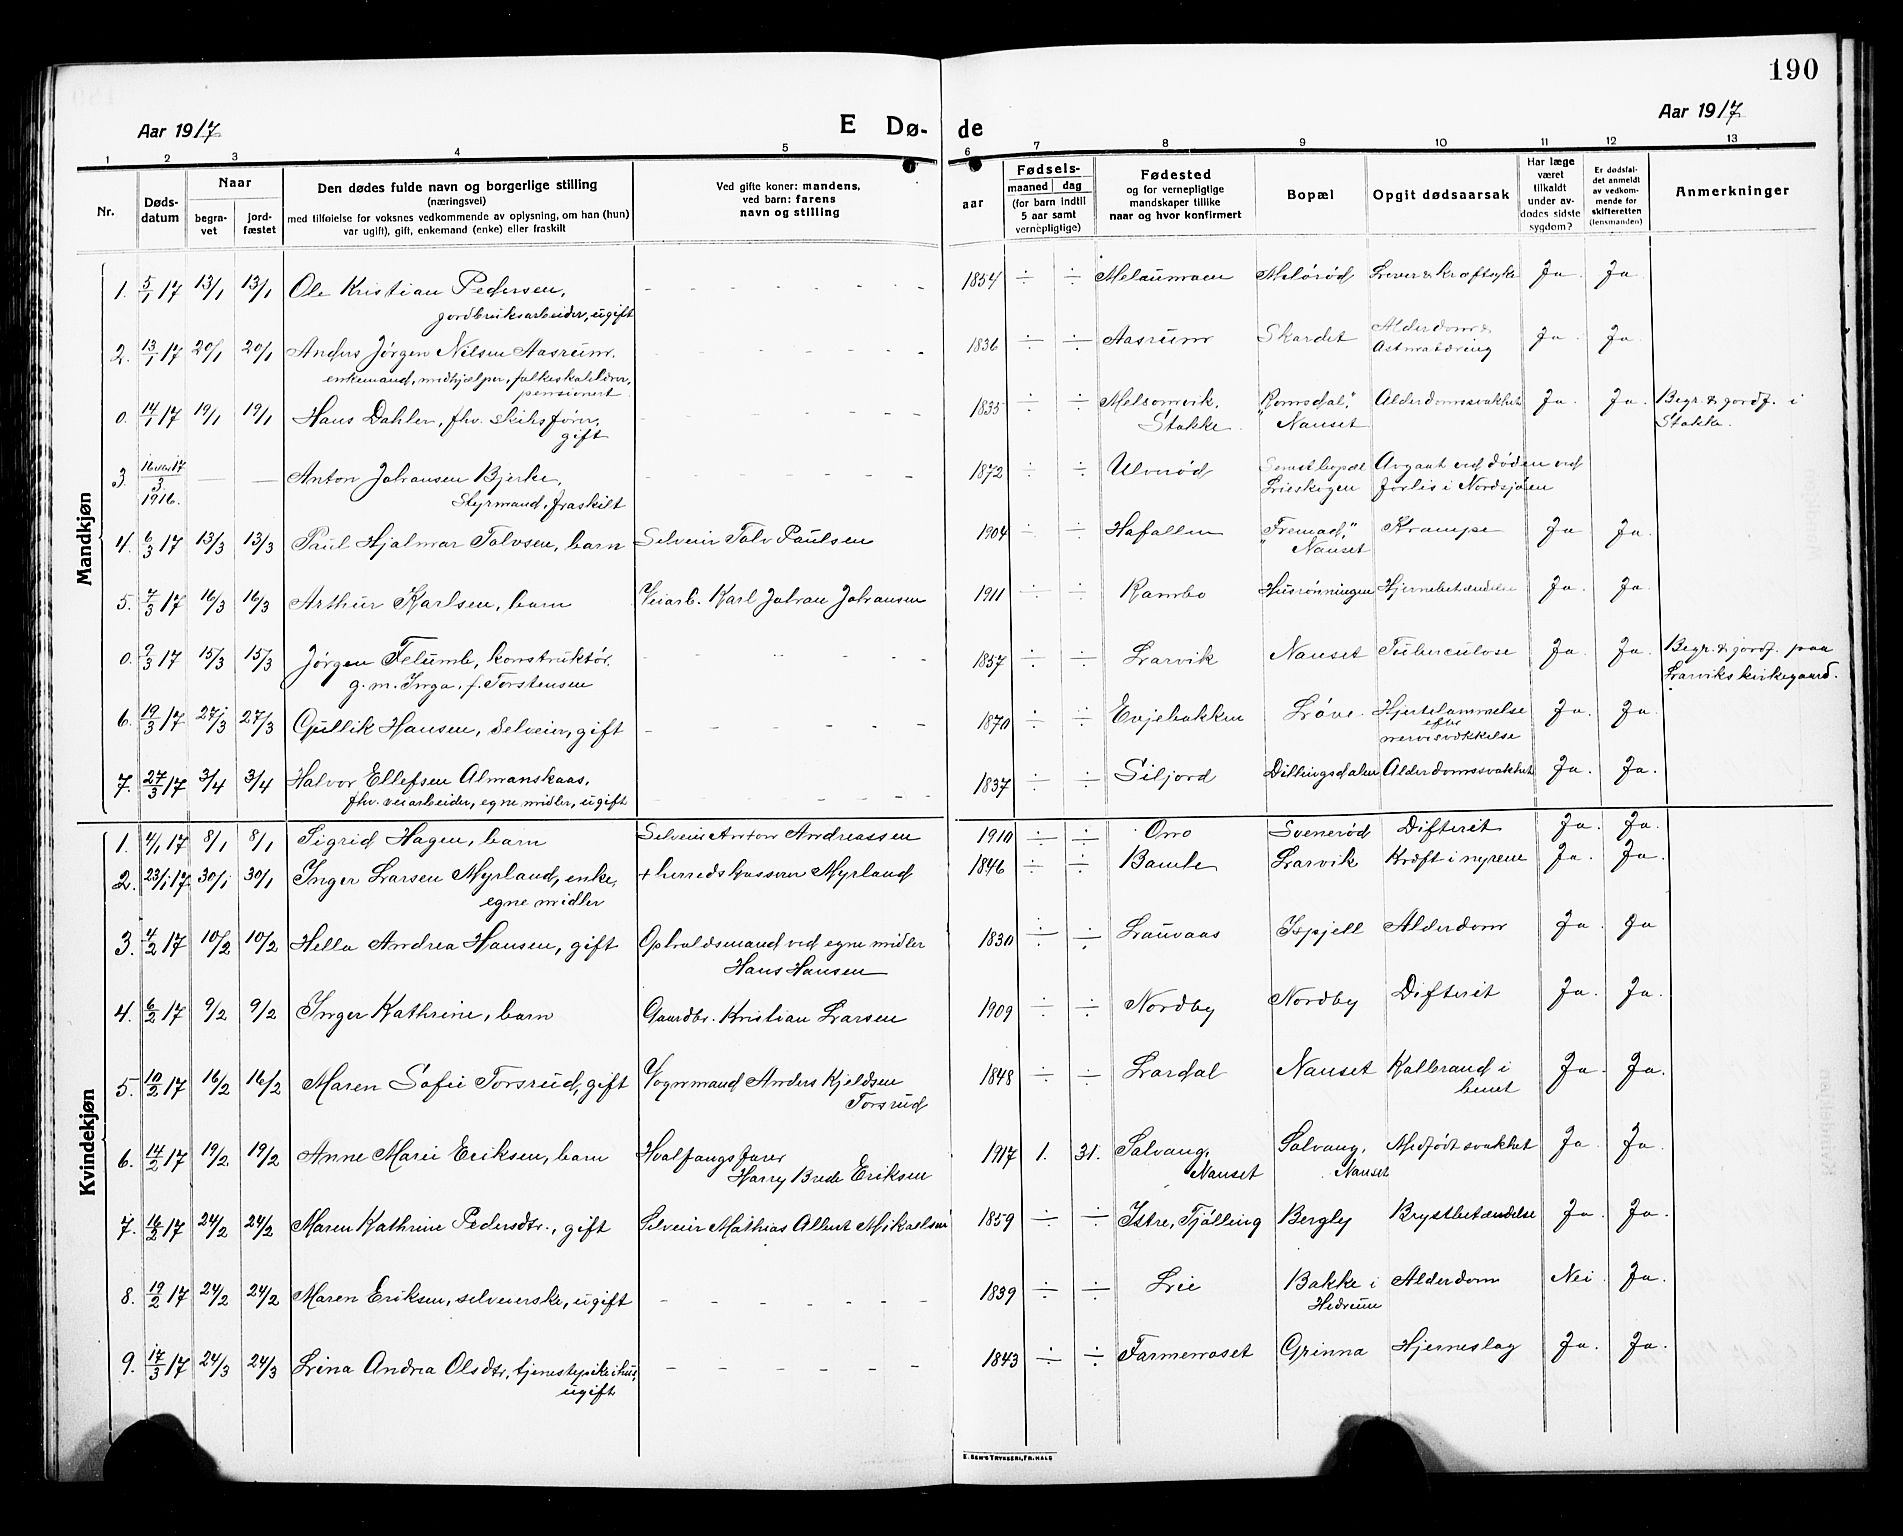 190
Aar 1917
E Dø- de
Aar 1917
1 2 3 4 5 6 7 8 9 10 11 12 13
Nr.
Døds-
datum
Naar
begra-
vet
jord-
fæstet
Den dødes fulde navn og borgerlige stilling
(næringsvei)
med tilføielse for voksnes vedkommende av oplysning, om han (hun)
var ugift), gift, enkemand (enke) eller fraskilt
Ved gifte koner: mandens,
ved barn: farens
navn og stilling
Fødsels-
aar
maaned dag
(for barn indtil
5 aar samt
vernepligtige)
Fødested
og for vernepligtige
mandskaper tillike
naar og hvor konfirmert
Bopæl
Opgit dødsaarsak
Har læge
været
tilkaldt
under av-
dødes sidste
sygdom?
Er dødsfal-
det anmeldt
av vedkom-
mende for
skifteretten
(lensmanden)
Anmerkninger
Mandkjøn
1. 5/1 17 13/1 13/1 Ole Kristian Pedersen, - - - - - - - 1854 ÷ ÷ Melaumoen Melørød Lever & kræftsyke Ja. Ja.
jordbruksarbeider, ugift
2. 13/1 17 20/1 20/1 Anders Jørgen Nilsen Aasrum. - - - - - - 1836 ÷ ÷ Aasrum Skardet Alderdom & Ja. Ja.
Astmatæring
enkemand, midhjælper, folkeskolelærer,
pensionert
0. 14/1 17 19/1 19/1 Hans Dahler, fhv. Skibsfører, 1835 ÷ ÷ Melsomvik, "Romsdal," Alderdomssvakhet Ja. Ja. Begr. & jordf. i
gift Stokke. Nanset Stokke.
3. 16/3 1916. — — Anton Johansen Bjerke, - - - - - - 1872 ÷ ÷ Ulverød Senest bopæl Avgaat ved døden ved
Styrmand, fraskilt Lieskogen forlis i Nordsjøen
4. 6/3 17 13/3 13/3 Paul Hjalmar Tolvsen, barn Selveier Tolv Paulsen 1904 ÷ ÷ Hafallen "Fremad," Krampe Ja Ja.
Nanset
5. 7/3 17 16/3 16/3 Arthur Karlsen, barn Veiarb. Karl Johan Johansen 1911 ÷ ÷ Rambo Husrønningen Hjernebetændelse Ja. Ja.
0. 9/3 17 15/3 15/3 Jørgen Felumb, konstruktør. - - - - - 1857 ÷ ÷ Larvik Nanset Tuberculose Ja. Ja. Begr. & jordf. paa
g. m. Inga, f. Torstensen Larviks kirkegaard.
6. 19/3 17 27/3 27/3 Gullik Hansen, Selveier, gift - - - - - - 1870 ÷ ÷ Evjebakken Løve. Hjertelammelse Ja. Ja.
efter
nervesvækkelse
7. 27/3 17 3/4 3/4 Halvor Ellefsen Almanskaas, - - - - - - 1837 ÷ ÷ Siljord Dillingsdalen Alderdomssvakhet Ja. Ja.
fhv. veiarbeider, egne midler, ugift
Kvindekjøn
1. 4/1 17 8/1 8/1 Sigrid Hagen, barn Selveier Anton Andreassen 1910 ÷ ÷ Omo Svenerød Difterit Ja. Ja.
2. 23/1 17 30/1 30/1 Inger Larsen Myrland, enke, + herredskasserer Myrland 1846 ÷ ÷ Bamle Larvik Kræft i nyrene Ja. Ja.
egne midler
3. 4/2 17 10/2 10/2 Hella Andrea Hansen, gift Opholdsmand ved egne midler 1830 ÷ ÷ Lauvaas Ispjell Alderdom Ja. Ja
Hans Hansen
4. 6/2 17 9/2 9/2 Inger Kathrine, barn Gaardbr. Kristian Larsen 1909 ÷ ÷ Nordby Nordby Difterit Ja. Ja.
5. 10/2 17 16/2 16/2 Maren Sofie Torsrud, gift Vognmand Anders Kjeldsen 1848 ÷ ÷ Lardal Nanset Kolbrand i Ja. Ja.
Torsrud benet
6. 14/2 17 19/2 19/2 Anne Marie Eriksen, barn Hvalfangsfarer 1917 1. 31. Solvang, Solvang, Medfødt svakhet Ja. Ja.
Harry Brede Eriksen Nanset Nanset
7. 16/2 17 24/2 24/2 Maren Kathrine Pedersdtr., gift Selveier Mathias Albert Mikaelsen 1859 ÷ ÷ Istre, Tjølling Bergly Brystbetændelse Ja. Ja.
8. 19/2 17 24/2 24/2 Maren Eriksen, selveierske, ugift - - - - - - - 1839 ÷ ÷ Lie Bakke i Alderdom Nei. Ja.
Hedrum
9. 17/3 17 24/3 24/3 Lina Andrea Olsdtr, tjenestepike i hus, - - - - - - 1843 ÷ ÷ Farmenroset Grinna Hjerneslag Ja. Ja.
ugift
E. SEM'S TRYKKERI, FR.HALD